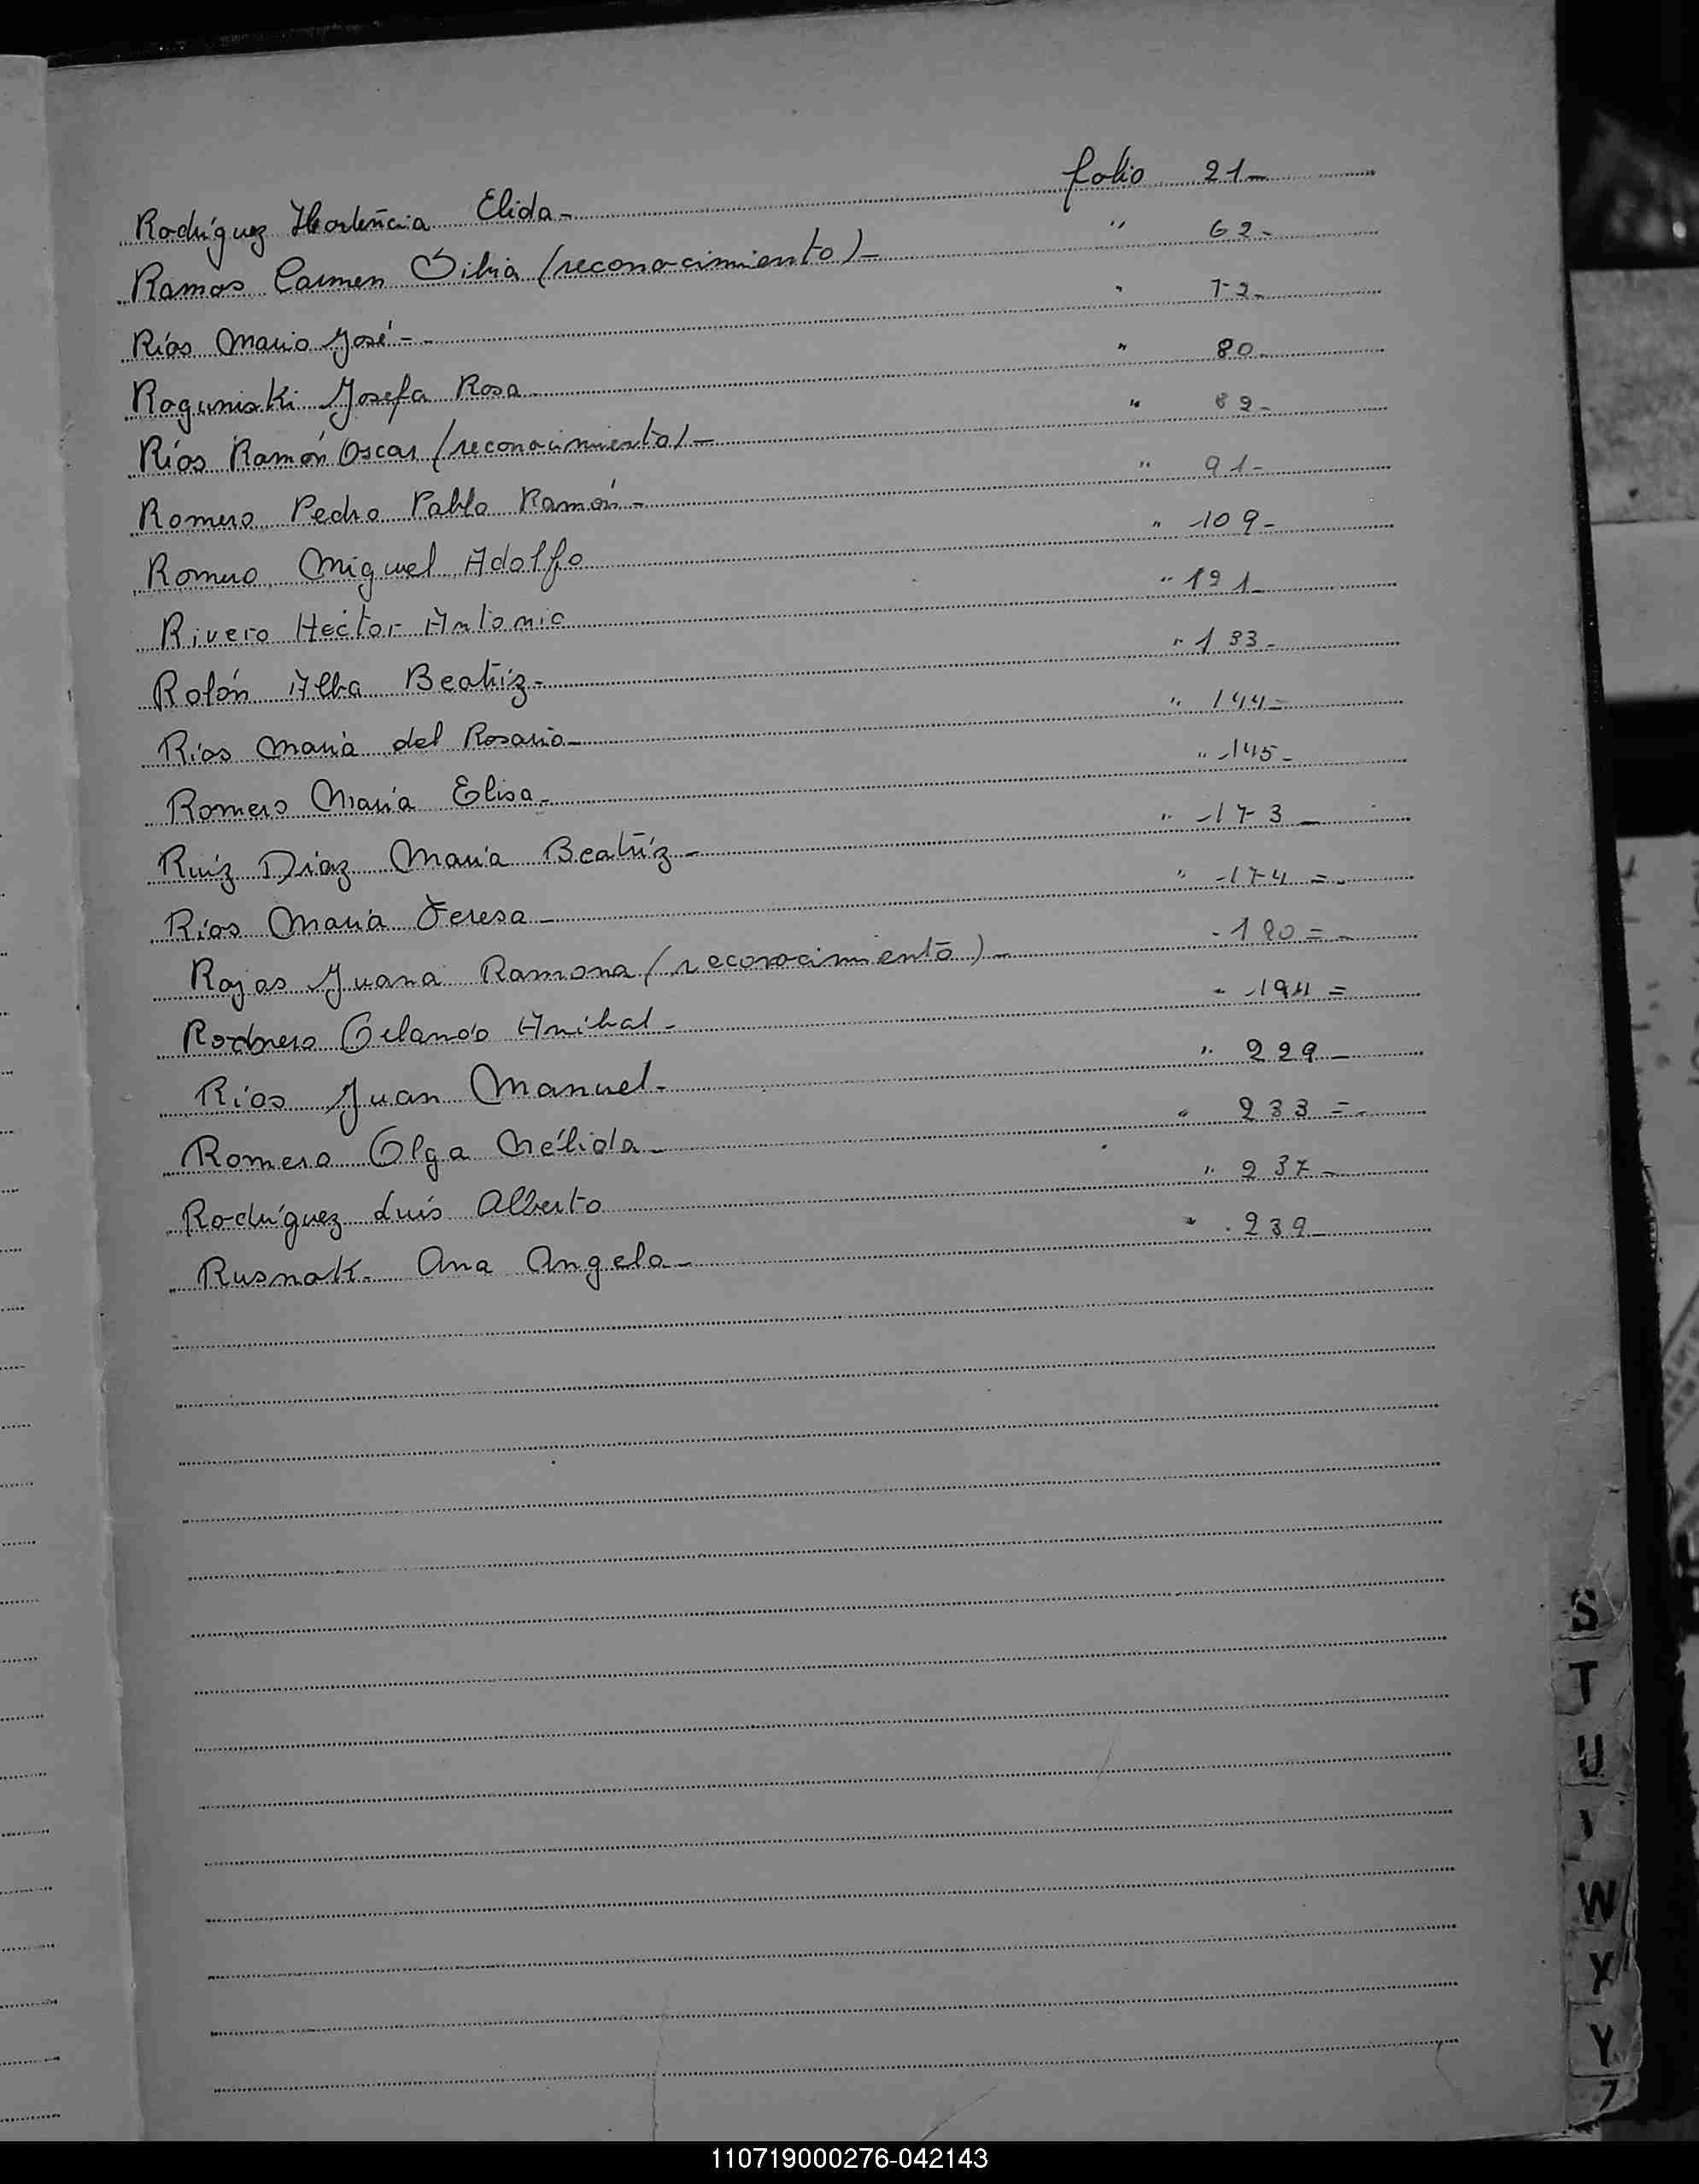 Rodríguez Hortencia Elida- folio 21-
Ramos Carmen Silvia (reconocimiento)- " 62-
Ríos Mario José-- " 72-
Roguniski Josefa Rosa- " 80-
Ríos Ramón Oscar (reconocimiento)- " 82-
Romero Pedro Pablo Ramón- " 91-
Romero Miguel Adolfo " 109-
Rivero Héctor Antonio " 121-
Rolón Alba Beatriz- " 133-
Ríos María del Rosario- " 144-
Romero María Elisa- " 145-
Ruíz Díaz María Beatríz- " 173-
Ríos María Teresa- " 174=-
Rojas Juana Ramona (reconocimiento)- " 190=-
Romero Orlando Anibal- " 194=
Ríos Juan Manuel- " 229-
Romero Olga Nélida- " 233=-
Rodríguez Luis Alberto " 237-
Rusnak- Ana Angela- " 239-
S
T
U
W
X
Y
Z
110719000276-042143